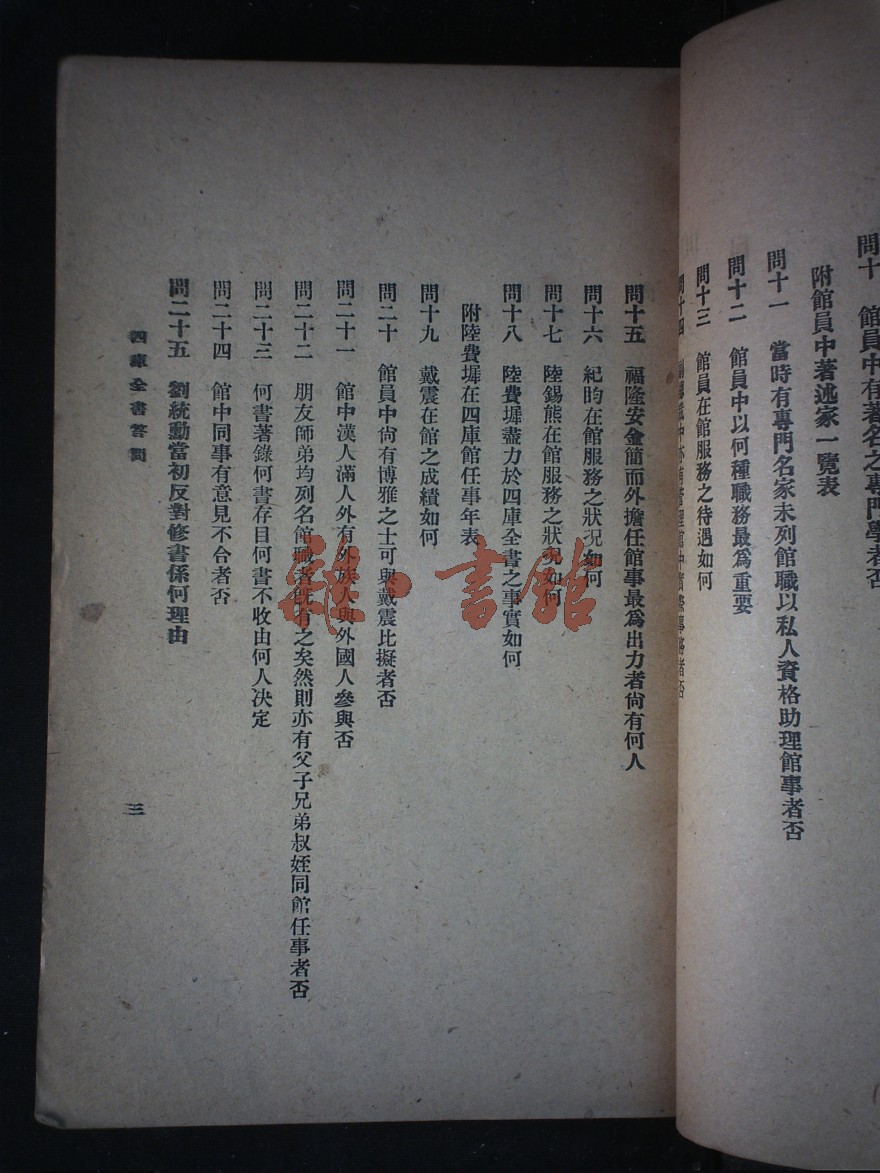 問十　館員中有著名之專門學者否
附館員中著述家一覽表
問十一　當時有專門名家未列館職以私人資格助理館事者否
問十二　館員中以何種職務最爲重要
問十三　館員在館服務之待遇如何
問十四　中亦有管理館中實際事務者否
問十五　福隆安金簡而外擔任館事最爲出力者尙有何人
問十六　紀昀在館服務之狀况如何
問十七　陸錫熊在館服務之狀况如何
問十八　陸費墀盡力於四庫全書之事實如何
附陸費墀在四庫館任事年表
問十九　戴震在館之成績如何
問二十　館員中尙有博雅之士可與戴震比擬者否
問二十一　館中漢人滿人外有外族人與外國人參與否
問二十二　朋友師弟均列名館職者旣有之矣然則亦有父子兄弟叔姪同館任事者否
問二十三　何書著錄何書存目何書不收由何人決定
問二十四　館中同事有意見不合者否
問二十五　劉統勳當初反對修書係何理由
四庫全書答問
三
書館